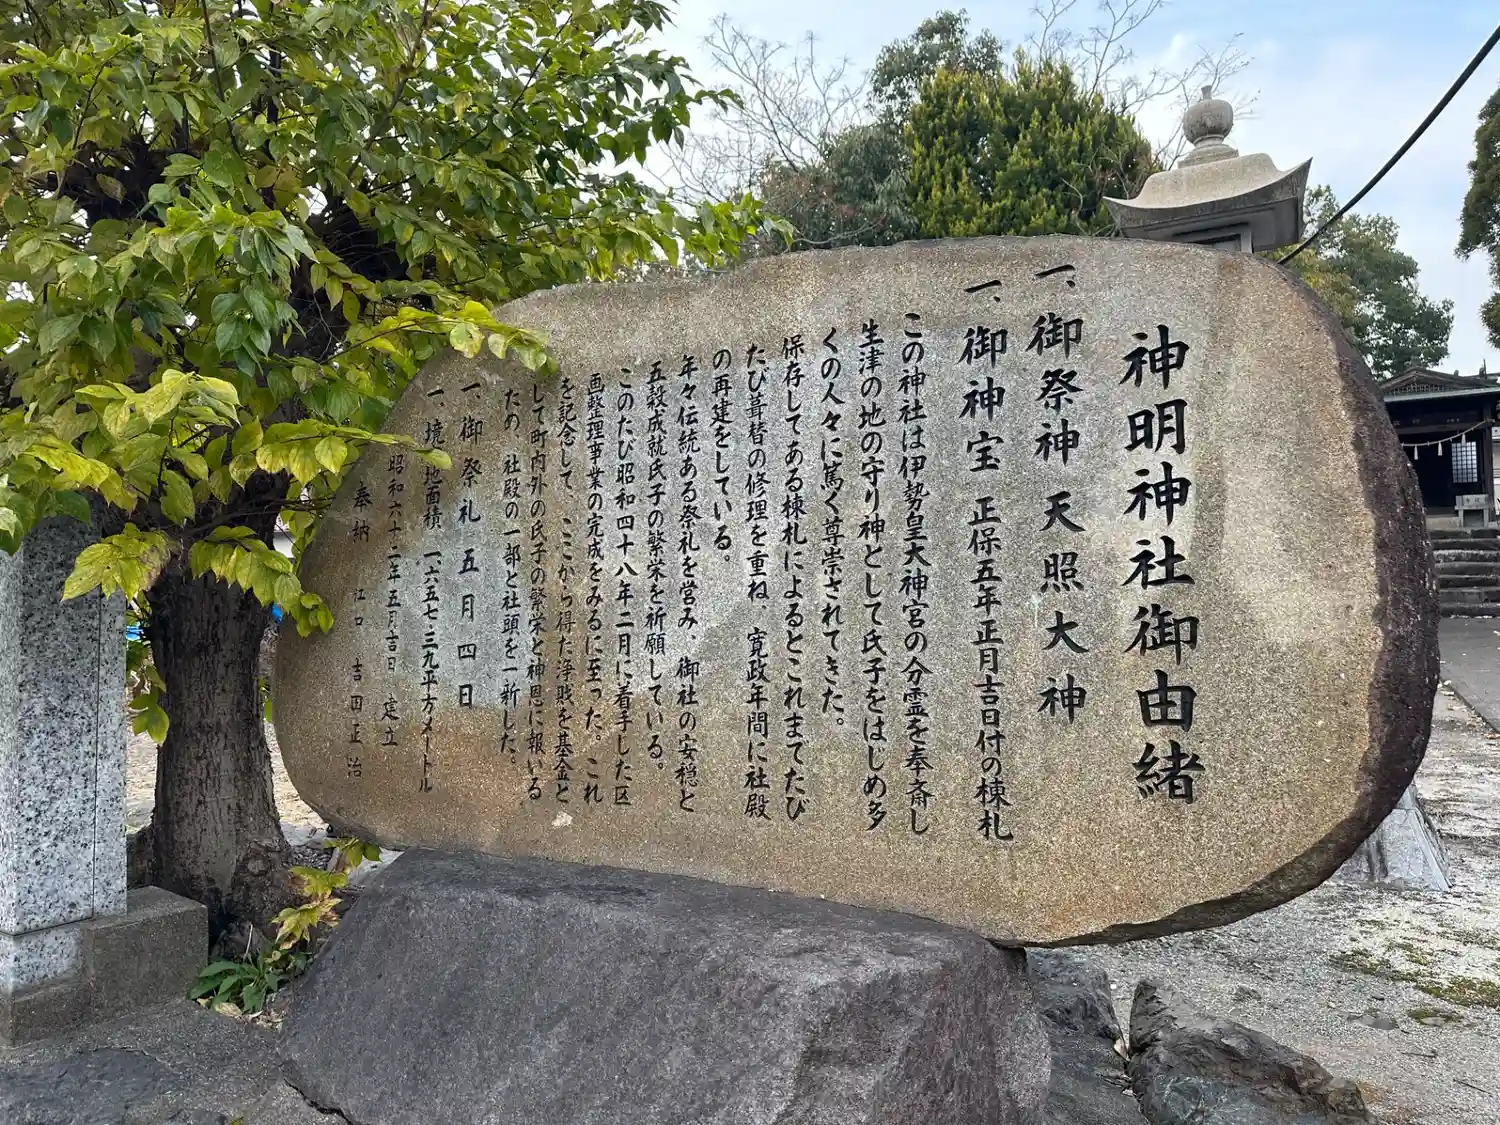 神明神社御由緒
一、御祭神 天照大神
一、御神宝 正保五年正月吉日付の棟札
この神社は伊勢皇大神宮の分霊を奉斎し
生津の地の守り神として氏子をはじめ多
くの人々に篤く尊崇されてきた。
保存してある棟札によるとこれまでたび
たび葺替の修理を重ね、寛政年間に社殿
の再建をしている。
年々伝統ある祭礼を営み、御社の安穏と
五穀成就氏子の繁栄を祈願している。
このたび昭和四十八年二月に着手した区
画整理事業の完成をみるに至った。これ
を記念して、ここから得た浄賎を基金と
して町内外の氏子の繁栄と神恩に報いる
ため、社殿の一部と社頭を一新した。
一、御祭礼 五月四日
一、境地面積 一、六五七・三九平方メートル
昭和六十二年五月吉日 建立
奉納 江口 吉田正治